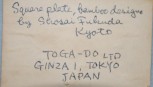 Square plate, bamboo designs
by Shosai Fukuda
Kyoto
TOGA-DO LTD
GINZA 1, TOKYO
JAPAN